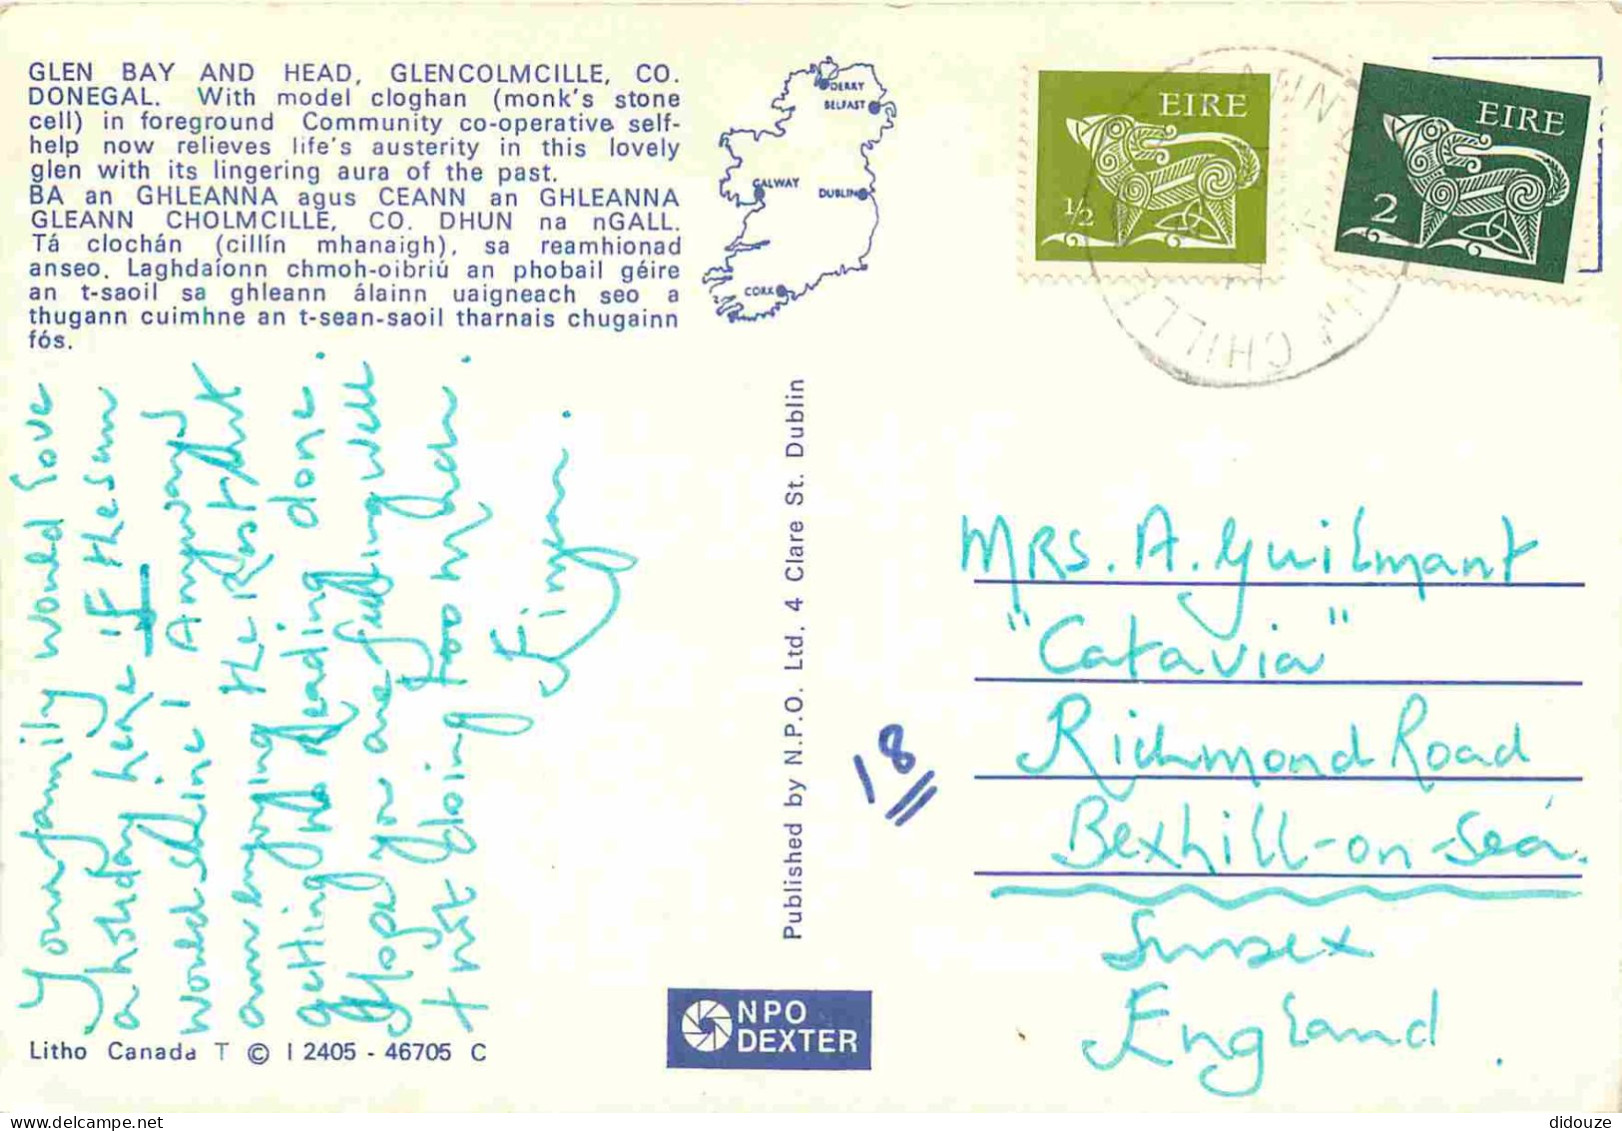 GLEN BAY AND HEAD, GLENCOLMCILLE, CO.
DONEGAL. With model cloghan (monk's stone
cell) in foreground Community co-operative self-
help now relieves life's austerity in this lovely
glen with its lingering aura of the past.
BA an GHLEANNA agus CEANN an GHLEANNA
GLEANN CHOLMCILLE, CO. DHUN na nGALL.
Tá clochán (cillín mhanaigh), sa reamhionad
anseo. Laghdaíonn chmoh-oibriú an phobail géire
an t-saoil sa ghleann álainn uaigneach seo a
thugann cuimhne an t-sean-saoil tharnais chugainn
fós.
DERRY
BELFAST
GALWAY
DUBLIN
CORK
EIRE
½
EIRE
2
CHILLE
Your family would love
a holiday here IF the sun
would shine! Anyway I
am enjoying the Rest, but
getting no Reading done.
Hope you are feeling well
+ not doing too much.
Finian.
Published by N.P.O. Ltd. 4 Clare St. Dublin
18
MRS. A. Guilmant
"Catavia"
Richmond Road
Bexhill-on-Sea.
Sussex
England.
Litho Canada T © I 2405 - 46705 C
NPO
DEXTER
didouze